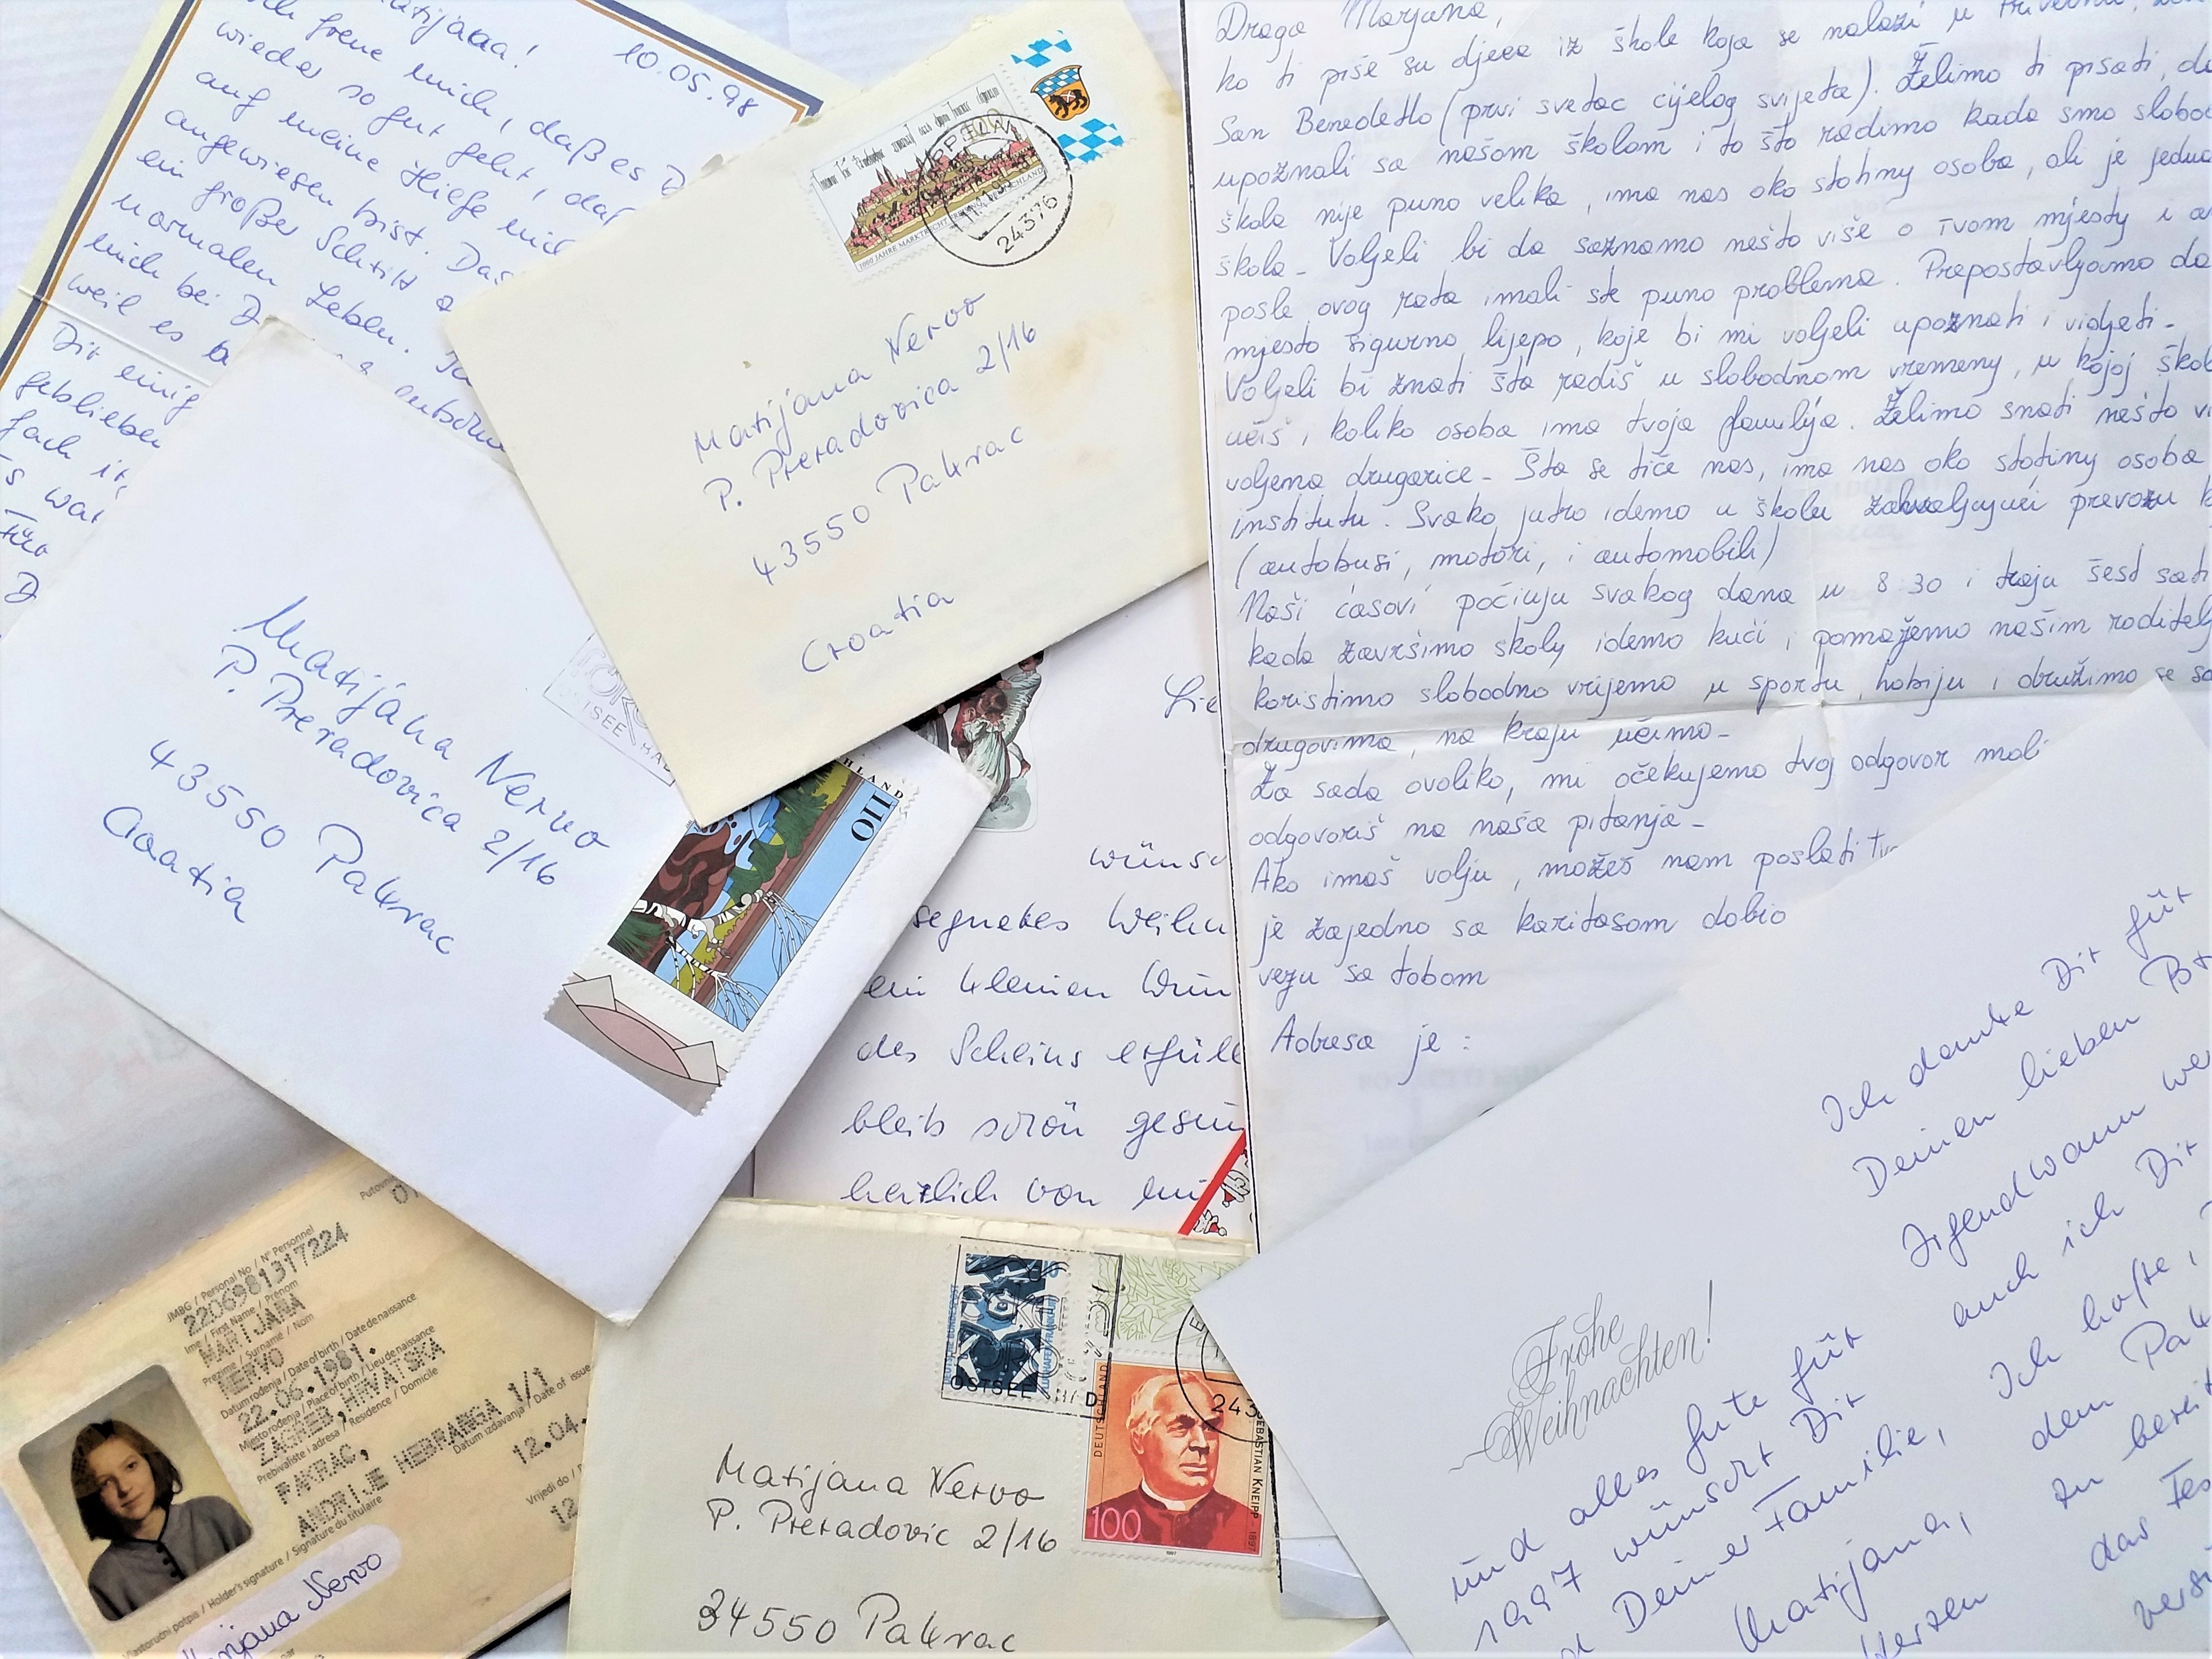 10.05.98
ich freue mich, daß es
wieder so gut geht, daß
auf meine Hilfe nich
angewiesen bist. Das
ein großer Schritt
normalen Leben.
mich bei
weil es
Dir einig
geblieben
fach
s war
Für
D
1000 JAHRE MARKTRECHT
KAPPELN
24376
Matijana Nervo
P. Preradovića 2/16
43550 Pakrac
Croatia
Matijana Nervo
P. Preradovića 2/16
43550 Pakrac
Croatia
110
Draga Marjana,
ko ti piše su djeca iz škole koja se nalazi u
San Benedetto (prvi svetac cijelog svijeta). Želimo ti pisati, da
upoznali sa našom školom i to što radimo kada smo slobod
škola nije puno velika, ima nas oko stotiny osoba, ali je jedna
škola - Voljeli bi da saznamo nešto više o tvom mjesty i
posle ovog rata imali ste puno problema. Prepostavljamo da
mjesto sigurno lijepo, koje bi mi voljeli upoznati i vidjeti -
Voljeli bi znati šta radiš u slobodnom vremeny, u kojoj škol
učiš, koliko osoba ima tvoja familija. Želimo snati nešto vi
voljena drugarice - Šta se tiče nas, ima nas oko stotiny osoba
institutu. Svako jutro idemo u školu zahvaljujući prevozu k
(autobusi, motori, i automobili)
Naši časovi počinju svakog dana u 8 30 i traju šest sati
kada završimo školy idemo kući, pomažemo našim roditelj
koristimo slobodno vrijemo u sportu, hobiju i družimo se sa
drugovima, na kraju učimo -
Za sada ovoliko, mi očekujemo tvoj odgovor
odgovoriš na naša pitanja -
Ako imaš volju, možeš nam poslati
je zajedno sa karitasom dobio
vezu sa tobom
Adresa je :
Lie
wünsc
segnetes Weihn
ein kleinen Wun
des Scheins erfüll
bleib schön gesun
herzlich von mi
JMBG / Personal No / N° Personnel
2206981317224
Ime / First Name / Prénom
MARIJANA
Prezime / Surname / Nom
NERVO
Datum rođenja / Date of birth / Date de naissance
22.06.1981.
Mjesto rođenja / Place of birth / Lieu de naissance
ZAGREB, HRVATSKA
Prebivalište i adresa / Residence / Domicile
PAKRAC,
ANDRIJE HEBRANGA 1/1
Datum izdavanja / Date of issue
12.04.
Vrijedi do /
12
Vlastoručni potpis / Holder's signature / Signature du titulaire
Marijana Nervo
OSTSEE
DEUTSCHLAND
SEBASTIAN KNEIPP
1897
100
1997
243
Matijana Nervo
P. Preradovic 2/16
34550 Pakrac
Frohe
Weihnachten!
und alles Gute für
1997 wünscht Dir
Deiner Familie,
Matijana,
Herzen
Ich danke Dir für
Deinen lieben Br
Irgendwann we
auch ich Dir
Ich hoffe,
dem Pak
zu bereit
das Fes